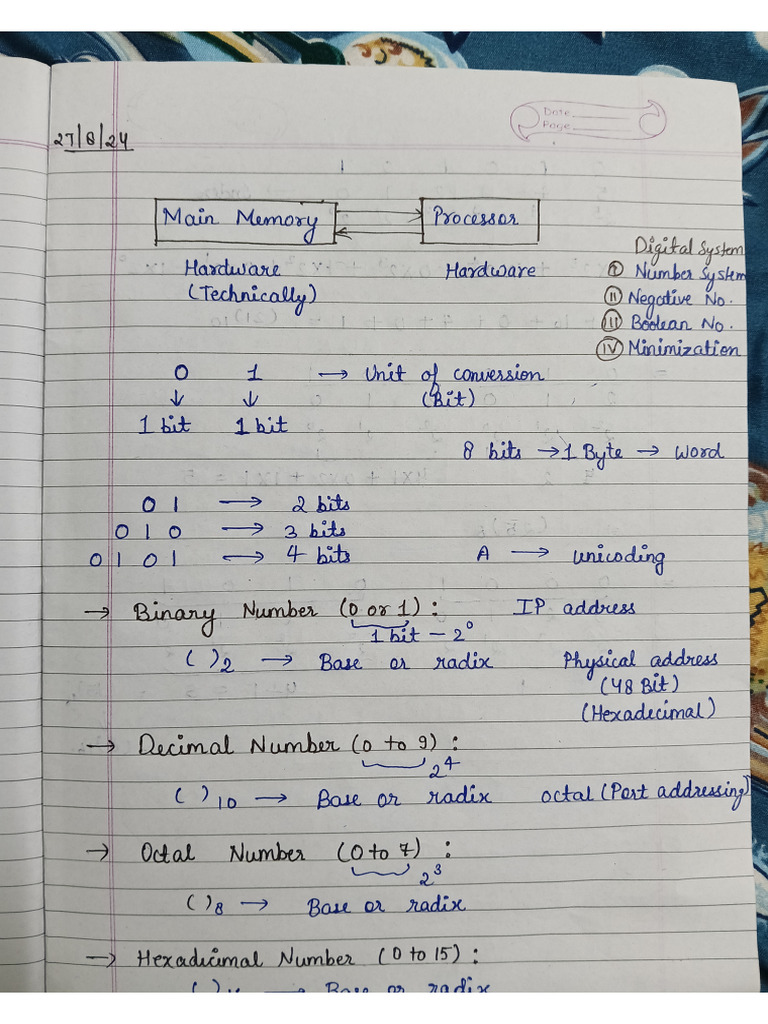 Date
Page
27/8/24
Main Memory Processor
Hardware Hardware
(Technically)
Digital System
I Number System
II Negative No.
III Boolean No.
IV Minimization
0 1 → Unit of conversion
↓ ↓ (Bit)
1 bit 1 bit
8 bits → 1 Byte → word
0 1 → 2 bits
0 1 0 → 3 bits
0 1 0 1 ← 4 bits A → unicoding
→ Binary Number (0 or 1) : IP address
1 bit - 2⁰
( )₂ → Base or radix Physical address
(48 Bit)
(Hexadecimal)
→ Decimal Number (0 to 9) :
2⁴
( )₁₀ → Base or radix octal (Port addressing)
→ Octal Number (0 to 7) :
2³
( )₈ → Base or radix
→ Hexadecimal Number (0 to 15) :
Base or radix